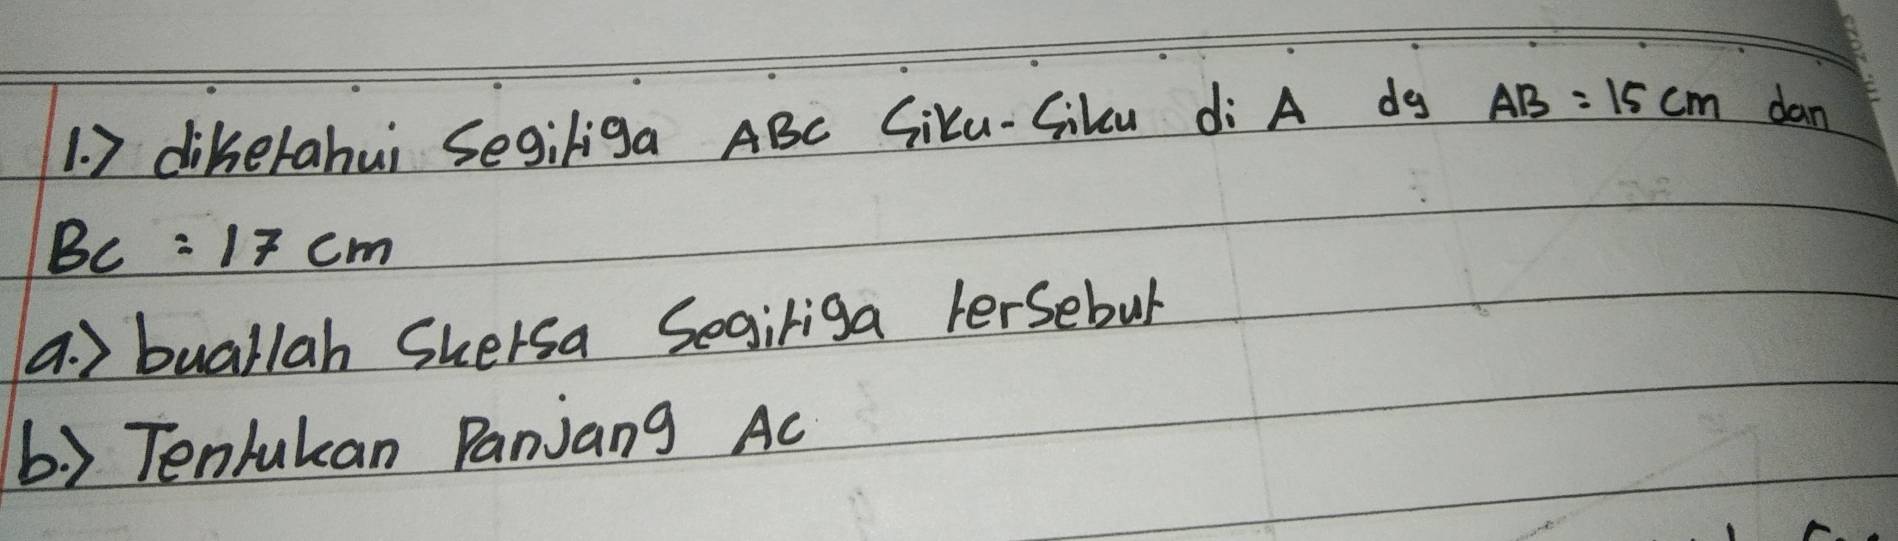 1.) diketahui segitiga ABC Siku-Siku di A dg AB = 15 cm dan
BC = 17 cm
a.) buatlah Sketsa Segitiga tersebut
b.) Tentukan Panjang AC